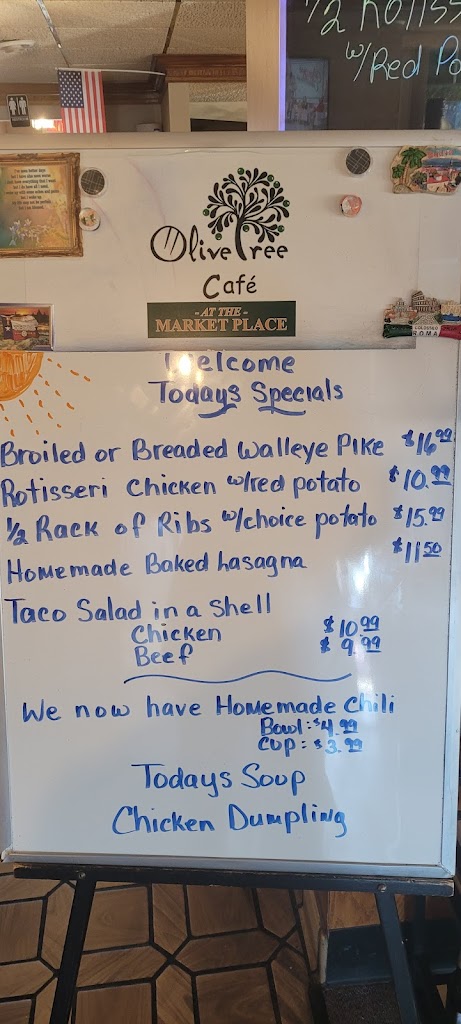 1/2 Rotiss
w/Red Po
Olive Tree
Café
- AT THE -
MARKET PLACE
COLOSSEO
ROMA
Welcome
Todays Specials
Broiled or Breaded Walleye Pike $16.99
Rotisseri Chicken w/red potato $10.99
1/2 Rack of Ribs w/choice potato $15.99
Homemade Baked Lasagna $11.50
Taco Salad in a Shell
Chicken $10.99
Beef $9.99
We now have Homemade Chili
Bowl: $4.99
Cup: $3.99
Todays Soup
Chicken Dumpling